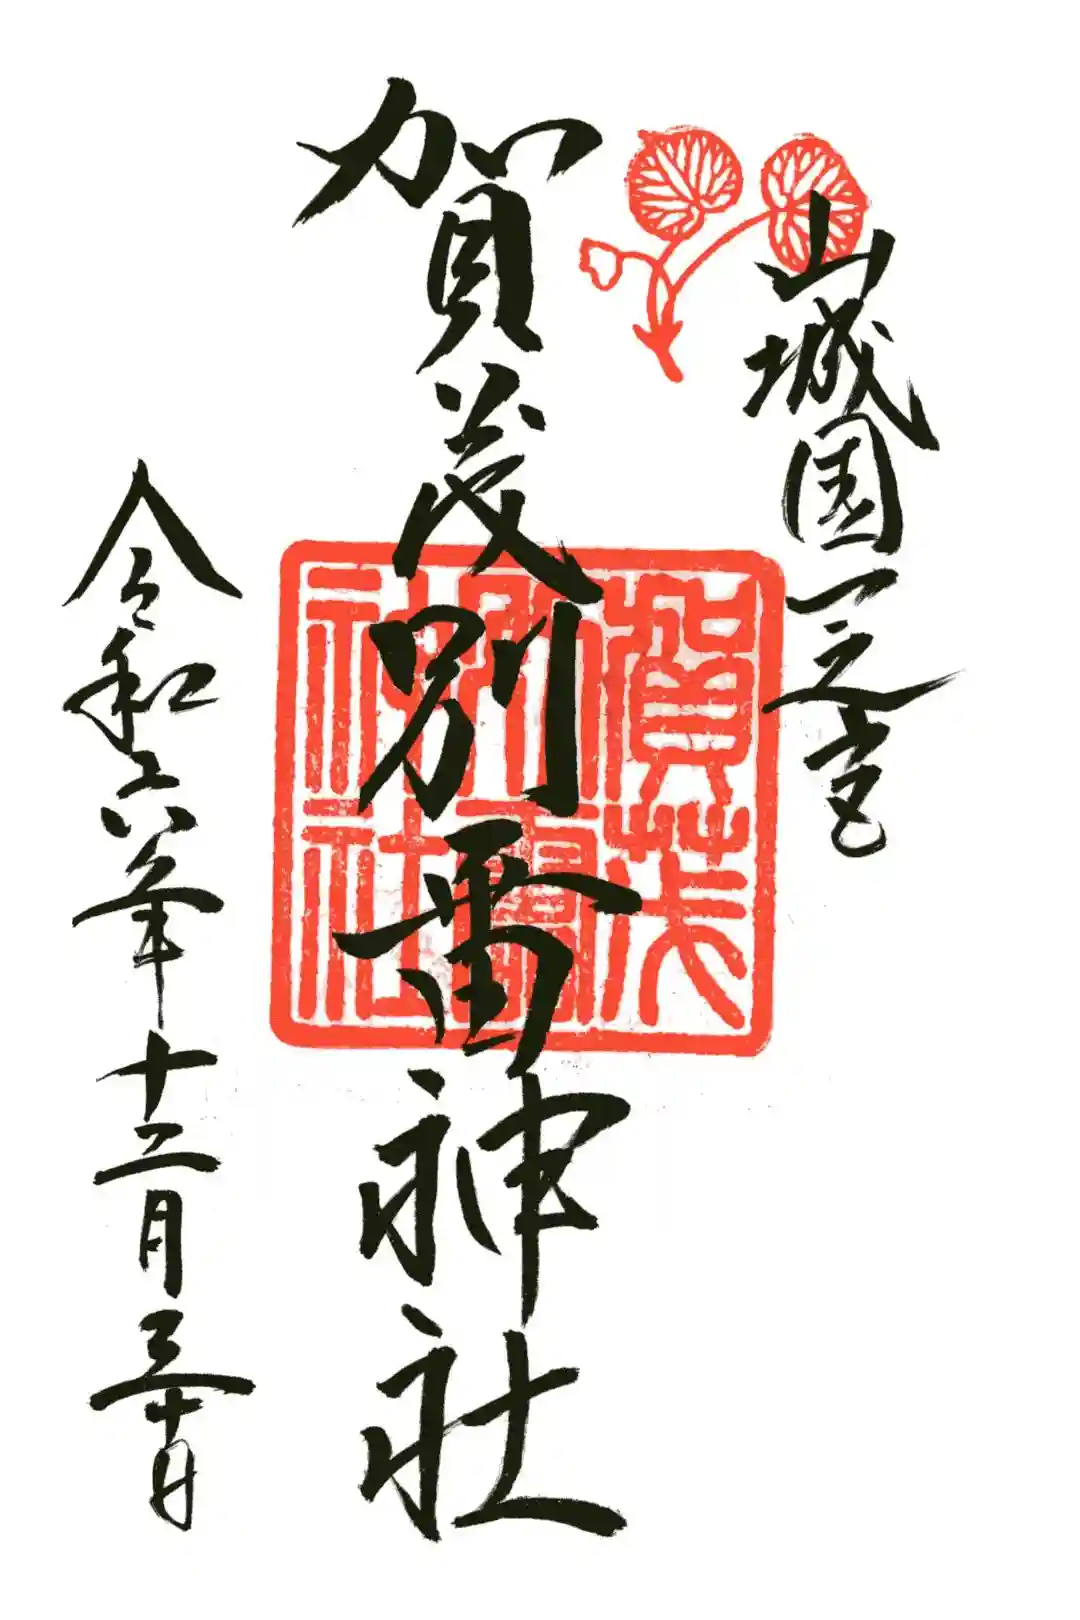 山城国一之宮
賀茂別雷神社
賀茂別雷神社
令和六年十二月三十日